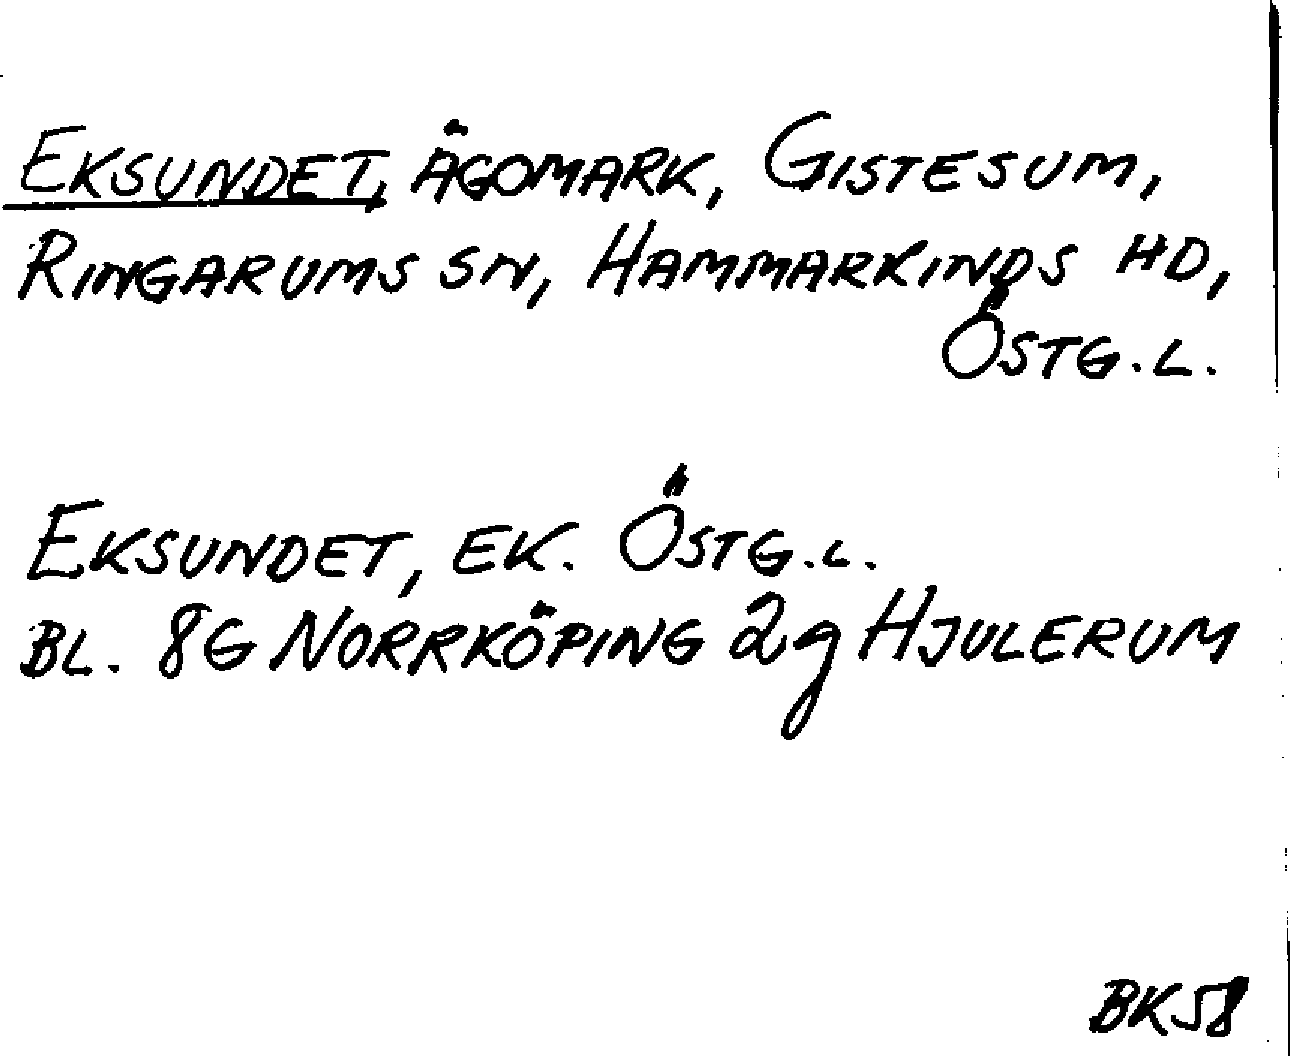 EKSUNDET, ÄGOMARK, GISTESUM,
RINGARUMS SN, HAMMARKINDS HD,
ÖSTG.L.
EKSUNDET, EK. ÖSTG.L.
BL. 8G NORRKÖPING 2g HJULERUM
BK58